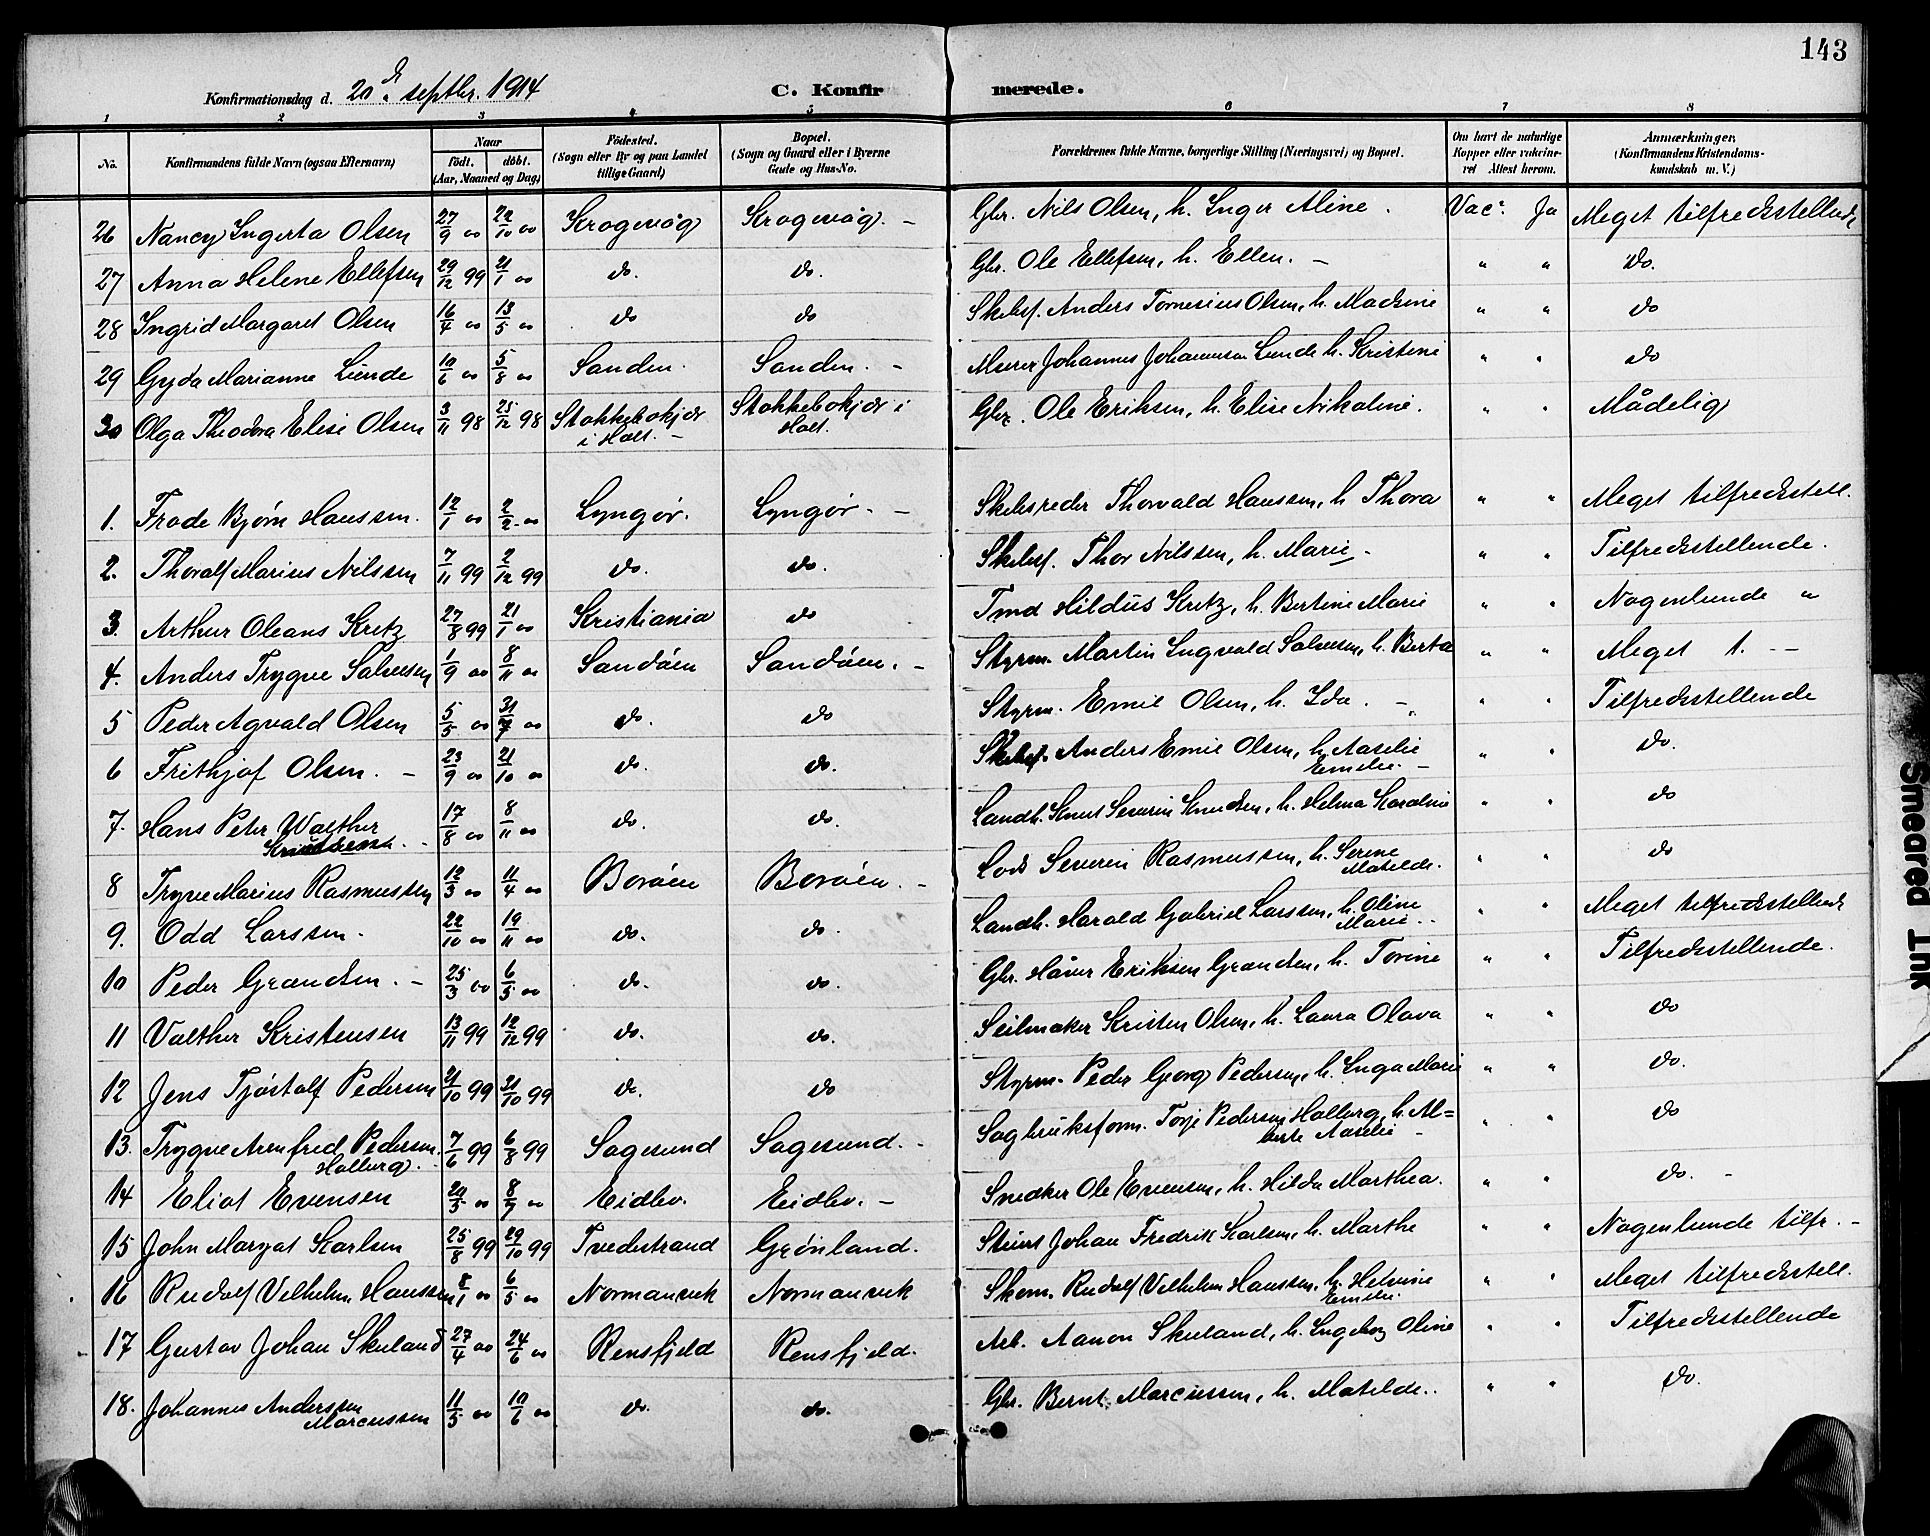 143
Konfirmationsdag d. 20de septbr. 1914 C. Konfirmerede.
1 2 3 4 5 6 7 8
No. Konfirmandens fulde Navn (ogsaa Efternavn) Naar födt. döbt. (Aar, Maaned og Dag) Födested. (Sogn eller By og paa Landet tillige Gaard) Bopæl. (Sogn og Gaard eller i Byerne Gade og Hus-No. Forældrenes fulde Navne, borgerlige Stilling (Næringsvei) og Bopæl. Om havt de naturlige Kopper eller vakcineret Attest herom. Anmærkninger, (Konfirmandens Kristendomskundskab m. V.)
26 Nancy Ingerta Olsen 27/9 00 22/10 00 Krogevåg Krogevåg. - Gbr. Nils Olsen, h. Inger Aline. Vac. Ja Meget tilfredsstellende
27 Anna Helene Ellefsen 29/12 99 21/1 00 do. do. Gbr. Ole Ellefsen, h. Ellen. - " " do.
28 Ingrid Margaret Olsen 16/4 00 13/5 00 do do Skibsf. Anders Tornesius Olsen, h. Madsine " " do
29 Gyda Marianne Lunde 10/6 00 5/8 00 Sanden. Sanden. - Murer Johannes Johannesen Lunde h. Kristine " " do
30 Olga Theodora Elise Olsen 3/11 98 25/12 98 Stokkebokjær i Holt. - Stokkebokjær i Holt. Gbr. Ole Eriksen, h. Elise Nikoline. " " Mådelig
1. Frode Bjørn Hanssen. 12/1 00 2/2 00 Lyngør. Lyngør. - Skibsreder Thorvald Hanssen, h. Thora " " Meget tilfredsstell.
2. Thoralf Marius Nilssen 7/11 99 2/12 99 do. do. Skibsf. Thor Nilssen, h. Marie - " " Tilfredsstellende.
3. Arthur Oleans Kretz 27/8 99 21/1 00 Kristiania do Tmd Hildus Kretz, h. Bertine Marie " " Nogenlunde "
4. Anders Trygve Salvesen 1/9 00 8/11 00 Sandøen Sandøen. - Styrm. Martin Ingvald Salvesen, h. Berta " " Meget t. --
5 Peder Agvald Olsen 5/5 00 31/7 00 do. do Styrm. Emil Olsen, h. Ida. - " " Tilfredsstellende
6 Frithjof Olsen. - 23/9 00 21/10 00 do. do. Skibsf. Anders Emil Olsen, h. Aaselie Emilie. - " " do.
7. Hans Peter Walther 17/8 00 8/11 00 do. do. Landh. Knut Severin Knudsen, h. Helma Karoline " " do
8 Trygve Marius Rasmussen 12/3 00 11/4 00 Borøen Borøen. - Lods Severin Rasmussen, h. Serine Matilde. " " do
9. Odd Larssen. 22/10 00 19/11 00 do. do. Landh. Harald Gabriel Larssen, h. Oline Marie. " " Meget tilfredsstellende
10 Peder Grændsen. - 25/3 00 6/5 00 do. do. Gbr. Håver Eriksen Grændsen, h. Torine " " Tilfredsstellende.
11 Valther Kristensen 13/11 99 12/12 99 do. do. Seilmaker Kristen Olsen, h. Laura Olava " " do
12 Jens Tjøstolf Pedersen 21/10 99 31/10 99 do. do Styrm. Peder Georg Pedersen, h. Inga Marie " " do.
13. Trygve Arnfred Pedersen Holberg. 7/6 99 6/8 99 Sagesund Sagesund. - Sagbruksform. Torje Pedersen Holberg, h. Alberte Aaselie - " " do
14 Eliot Evensen 20/5 00 8/7 00 Eidbo. Eidbo. - Snedker Ole Evensen, h. Hilda Marthea. " " do. -
15 John Maryat Karlsen 25/8 99 29/10 99 Tvedestrand Grønland. Johan Fredrik Karlsen, h. Marthe " " Nogenlunde tilfr. -
16 Rudolf Vilhelm Hanssen 8/1 00 6/5 00 Normanvik Normanvik Skom. Rudolf Vilhelm Hanssen, h. Helmine Emilie. " " Meget tilfredsstell.
17 Gustav Johan Skuland 27/4 00 24/6 00 Rensfjeld Rensfjeld. Arb. Aanon Skuland, h. Ingeborg Oline " " Tilfredsstellende
18. Johannes Anderssen Marcussen 11/5 00 10/6 00 do. do. Gbr. Bernt Marcussen, h. Matilde. " " do.
Smeared Ink